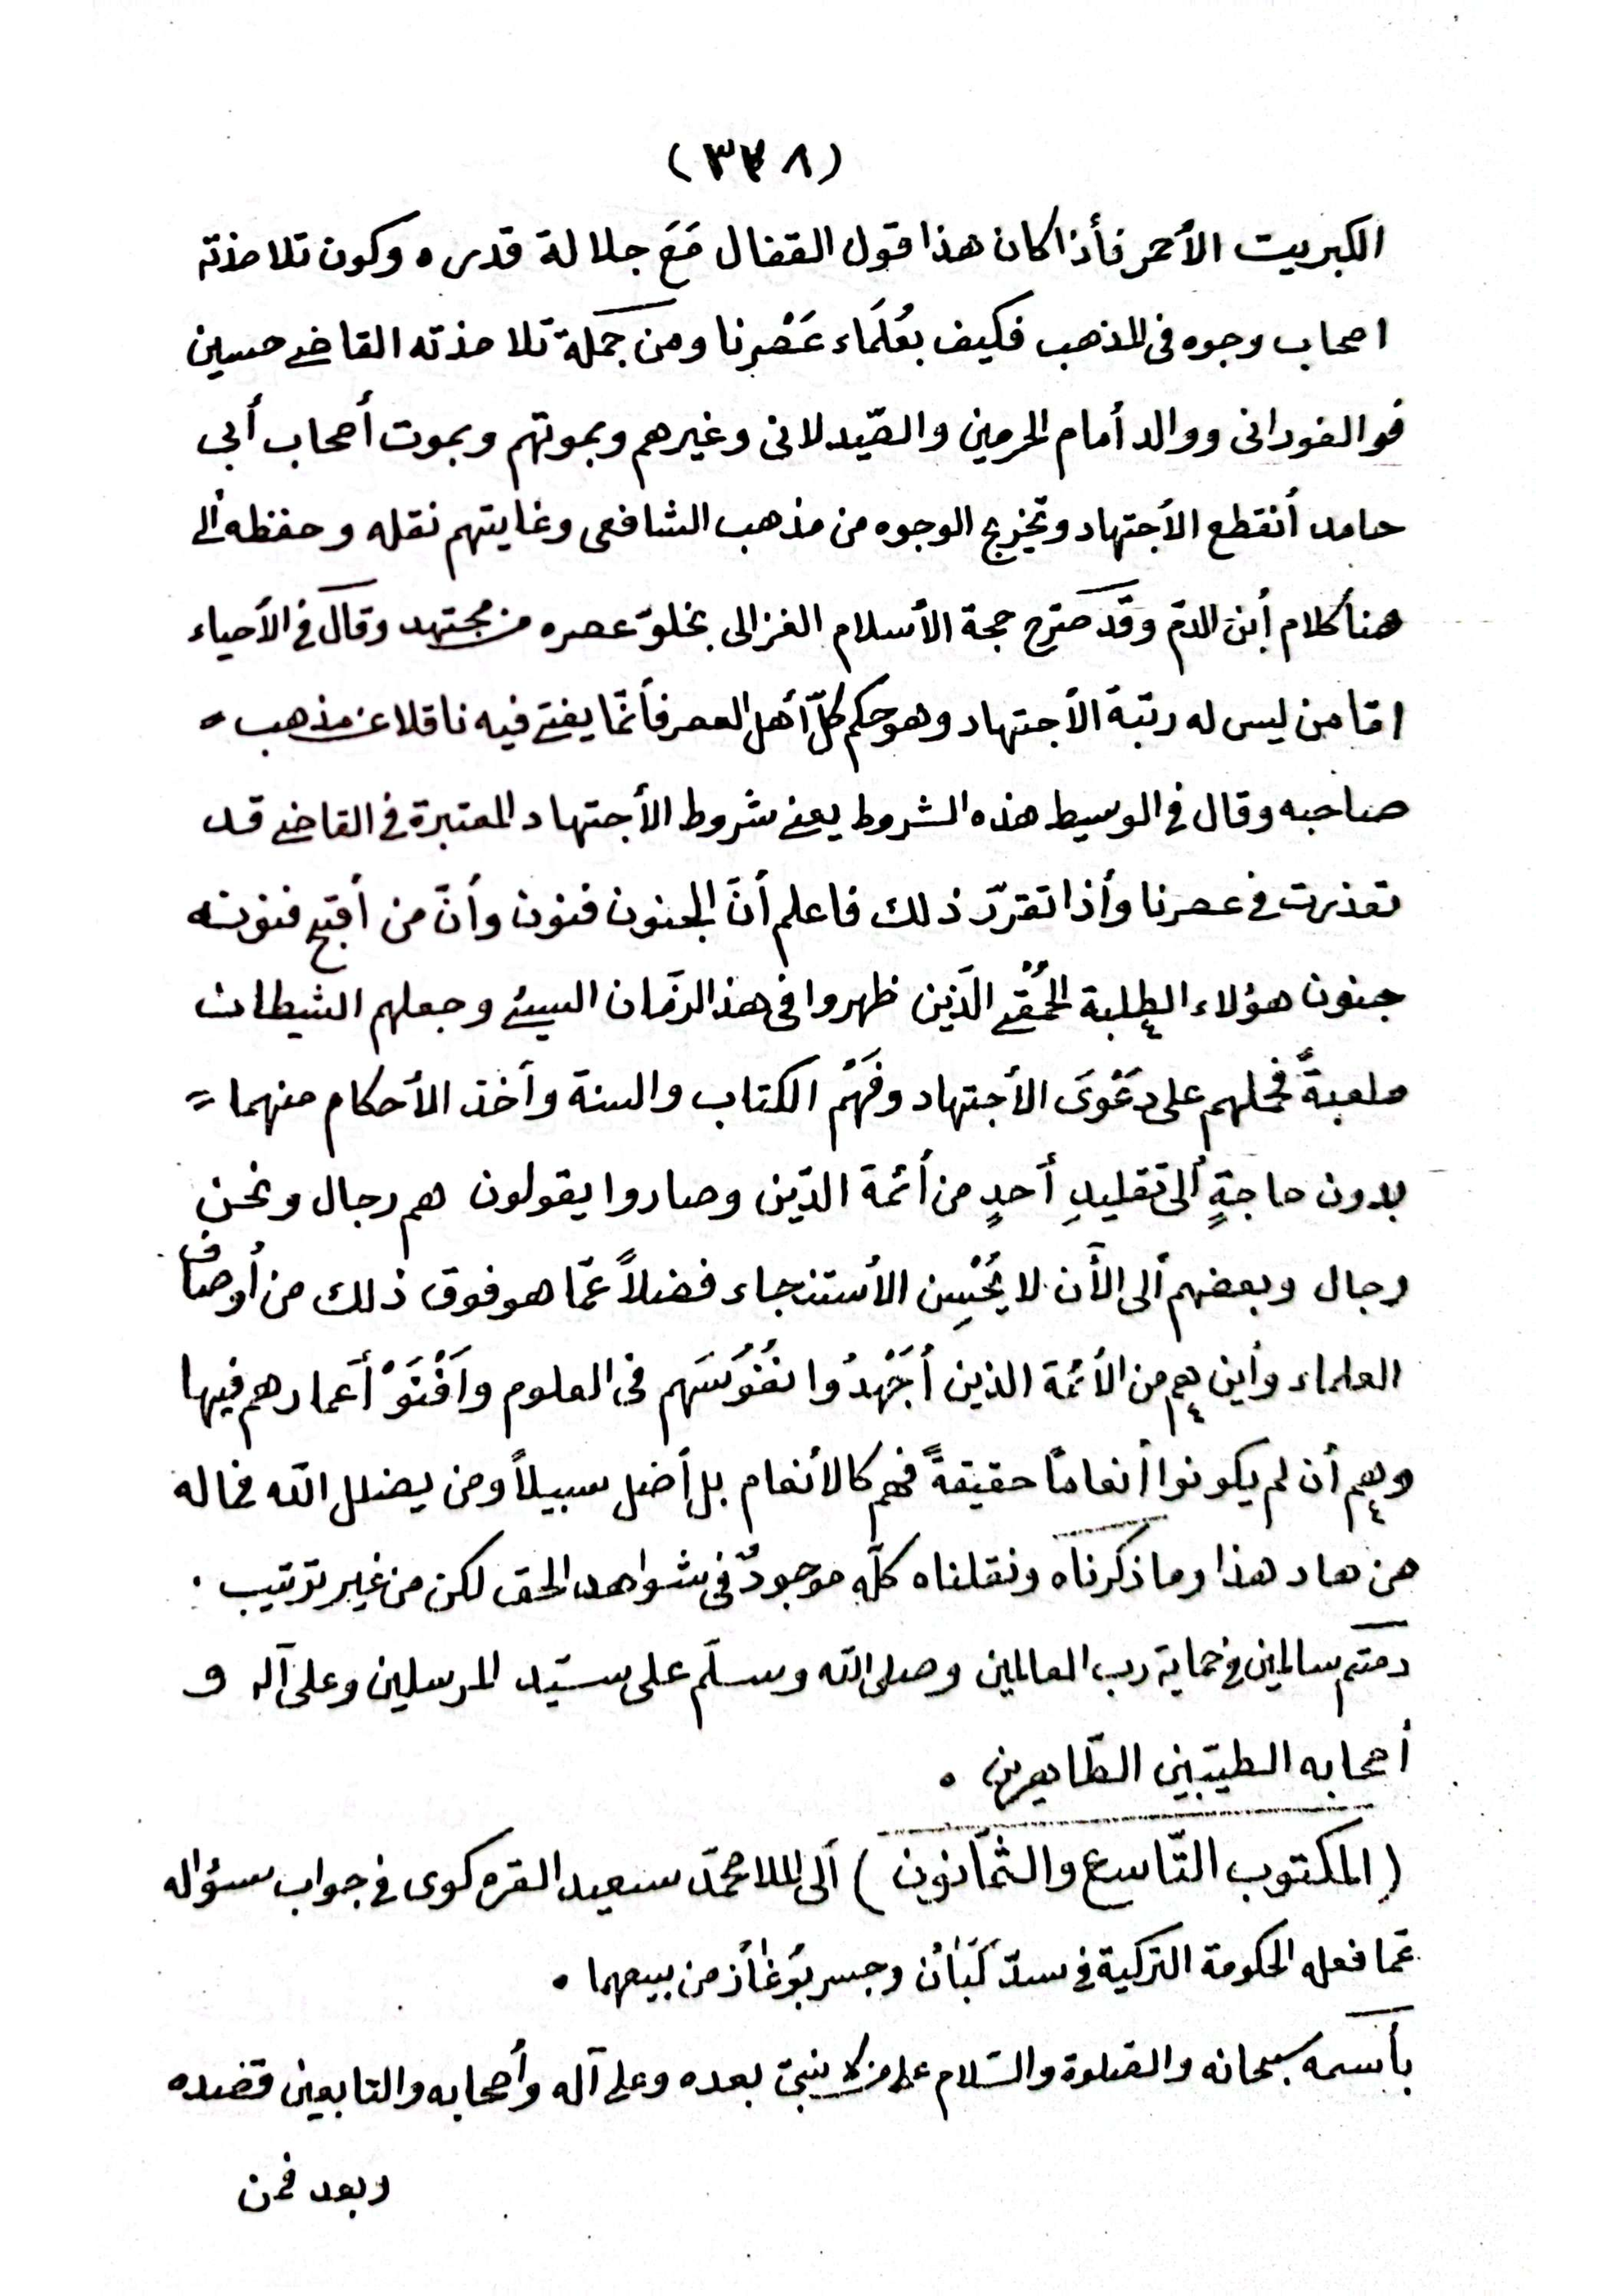 (٣٣٨)
الكبريت الأحمر فأذا كان هذا قول القفال مَعَ جلالة قدره وكون تلامذته
اصحاب وجوه فى المذهب فكيف بعُلَمَاء عَصْرِنا ومن جملة تلامذته القاضى حسين
فو الفورانى ووالد أمام الحرمين والصّيدلانى وغيرهم وبموتهم وبموت أصحاب أبى
حامد أنقطع الأجتهاد وتخريج الوجوه من مذهب الشافعى وغايتهم نقله وحفظه ألى
هنا كلام أبن الدم وقد صَرّح حجة الأسلام الغزالى بخلوّ عصره من مجتهد وقال فى الأحياء
امّا من ليس له رتبة الأجتهاد وهو حكم كلّ أهل العصر فأنّما يفتى فيه ناقلا عن مذهب
صاحبه وقال فى الوسيط هذه الشروط يعنى شروط الأجتهاد المعتبرة فى القاضى قد
تعذرت فى عصرنا وأذا تقرّر ذلك فاعلم أنّ الجنون فنون وأنّ من أقبح فنونه
جنون هؤلاء الطلبة الحُمْقى الّذين ظهروا فى هذا الزمان السيئ وجعلهم الشيطان
ملعبةً فحملهم على دَعْوَى الأجتهاد وفَهْم الكتاب والسنة وأخذ الأحكام منهما =
بدون حاجةٍ ألى تقليدِ أحدٍ من أئمة الدّين وصاروا يقولون هم رجال ونحن
رجال وبعضهم ألى الأن لا يُحْسِن الأستنجاء فضلاً عمّا هو فوق ذلك من أوصاف
العلماء وأين هم من الأئمة الذين أجَهْدُوا نفُوسَهم فى العلوم وأفْنَوْ أعمارهم فيها
وهم أن لم يكونوا أنعامًا حقيقةً فهم كالأنعام بل أضل سبيلاً ومن يضلل الله فما له
من هاد هذا وما ذكرناه ونقلناه كلّه موجودٌ فى شواهد الحق لكن من غير ترتيب .
دمتم سالمين فى حماية رب العالمين وصلى الله وسلّم على سيّد المرسلين وعلى آله و
أصحابه الطيّبين الطّاهرين ٠
(المكتوب التّاسع والثمّانون) ألى الملا محمّد سعيد القره كوى فى جواب سؤاله
عمّا فعله الحكومة التركية فى سدّ كَبَانْ وجسر بُوغَازْ من بيعهما ٠
بأسمه سبحانه والصّلوة والسّلام على من لا نبىّ بعده وعلى آله وأصحابه والتابعين قصده
وبعد فمن